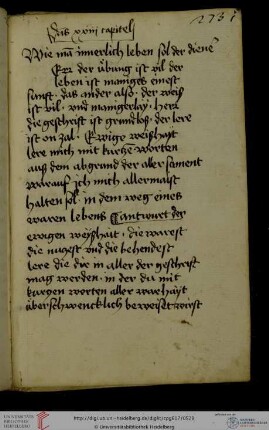 Das xxiii capitel
273
Wie mā innerlich leben sol der diener
Er der übung ist vil der
leben ist maniges einest
sanft · das ander also · der weis
ist vil · vnd manigerlay · herr
die geschrift ist grundlos · der lere
ist on zal · Ewige weisshayt
lere mich mit kurczē worten
auss dem abgrund der aller sament
warauf ich mich allermaist
halten sol · in dem weg eines
waren lebens Antwurt der
ewigen weysshait · die warest
die nuczest vnd die behendest
lere die dir in aller der geschrift
mag werden · in der du mit
kurczen worten aller warhayt
überschwencklich beweiset wirst
http://digi.ub.uni-heidelberg.de/diglit/cpg617/0529
© Universitätsbibliothek Heidelberg